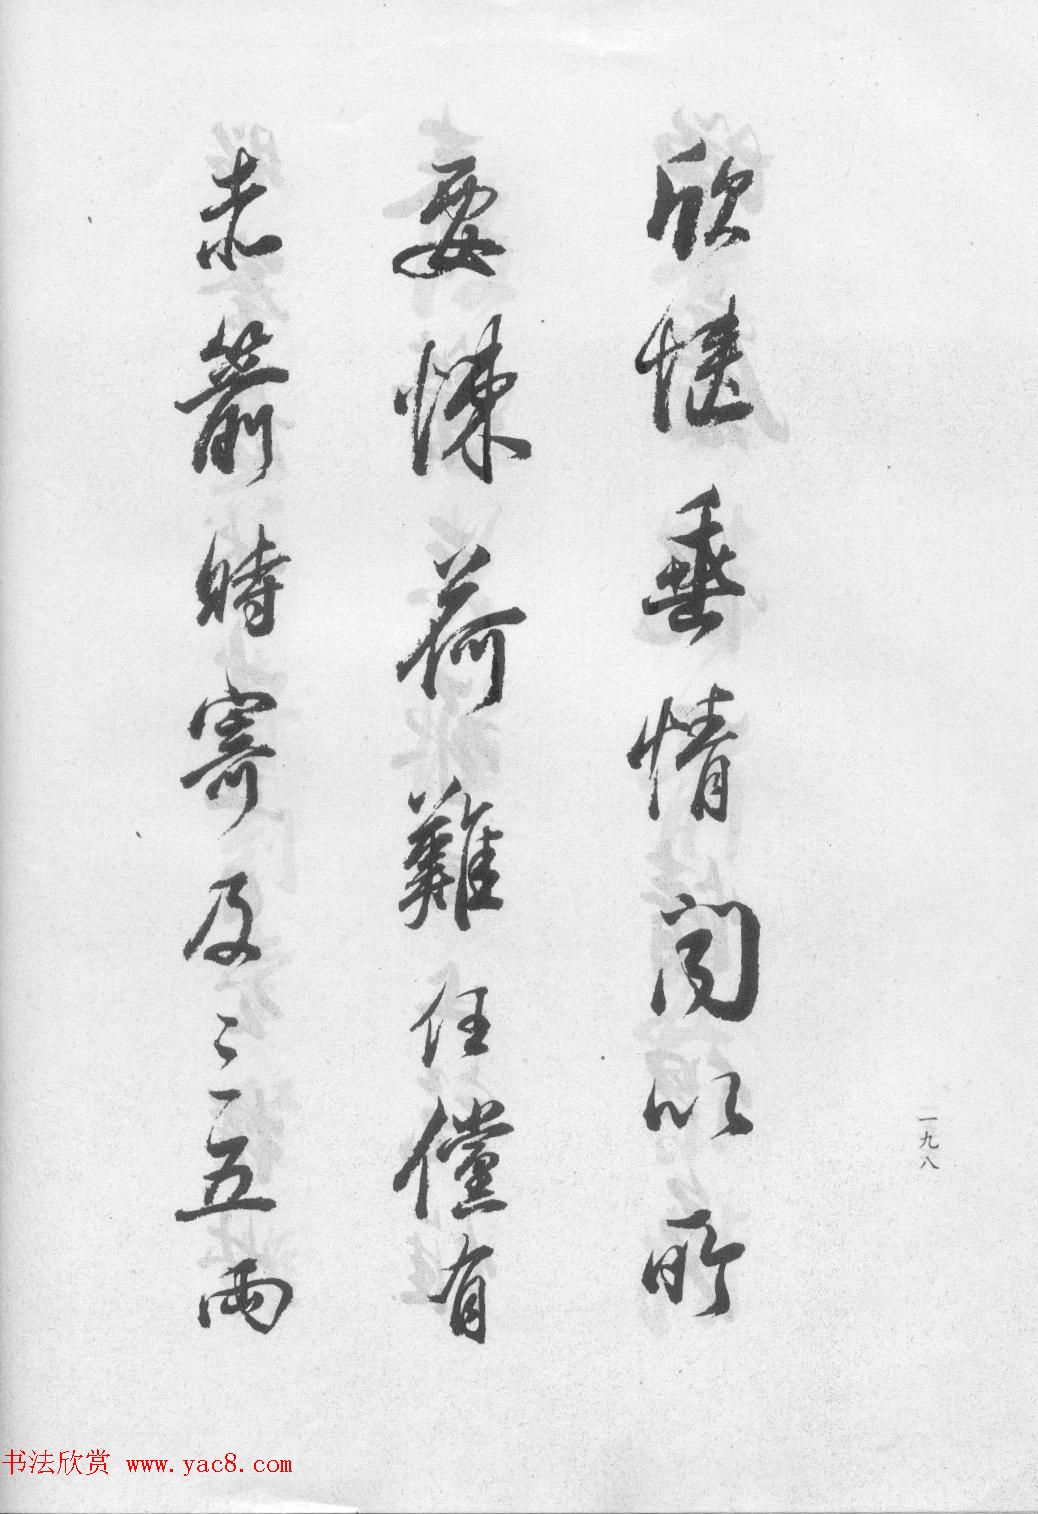 欣愜垂情問以所
要悚荷難任儻有
未箭時寄及三五兩
一九八
书法欣赏 www.yac8.com